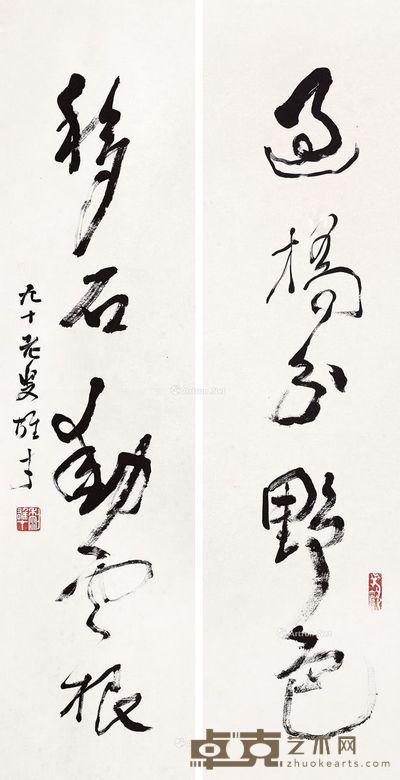 过桥分野色
移石动云根
九十老叟雄才
卓克艺术网
zhuokearts.com